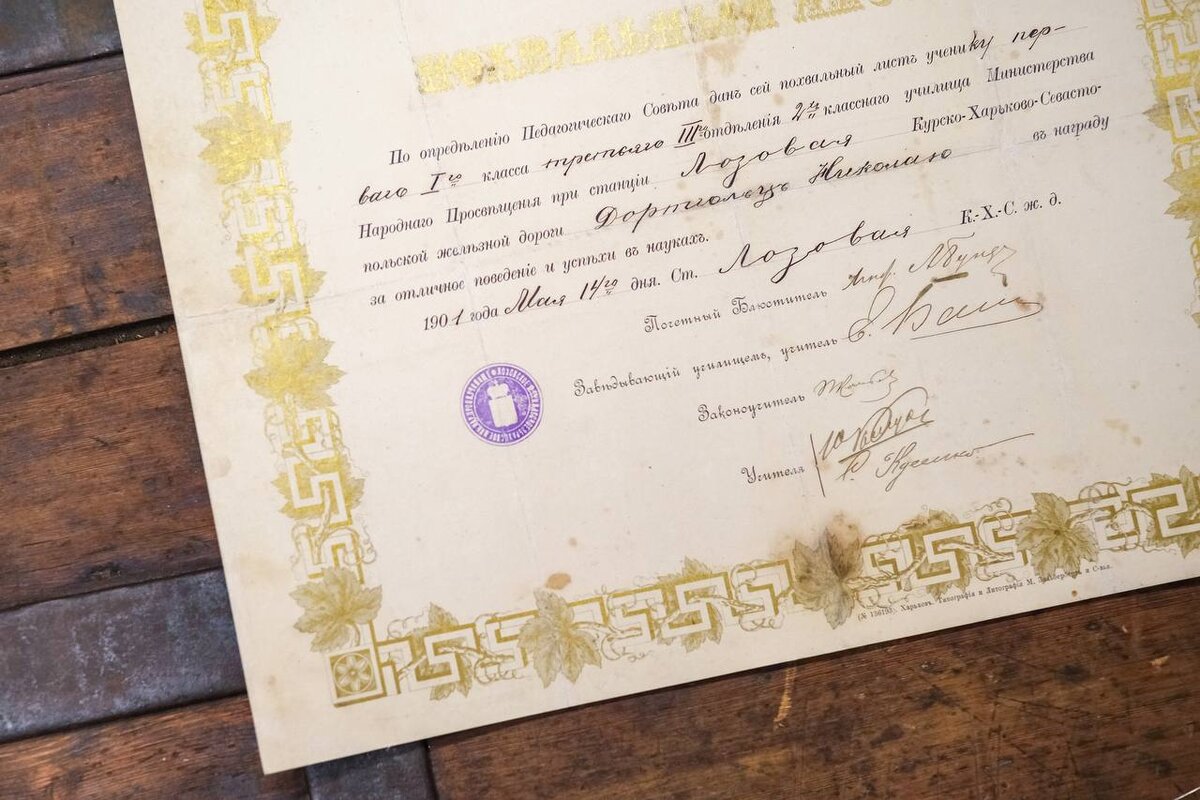 ПОХВАЛЬНЫЙ ЛИСТЪ
По опредѣленію Педагогическаго Совѣта данъ сей похвальный листъ ученику пер-
ваго I го класса третьяго III го отдѣленія 2 хъ класснаго училища Министерства
Народнаго Просвѣщенія при станціи Лозовая Курско-Харьково-Севасто-
польской желѣзной дороги Николаю въ награду
за отличное поведеніе и успѣхи въ наукахъ.
1901 года Мая 14 го дня. Ст. Лозовая К.-Х.-С. ж. д.
Почетный Блюститель
Завѣдывающій училищемъ, учитель
Законоучитель
Учителя
Харьковъ. Типографія и Литографія М.